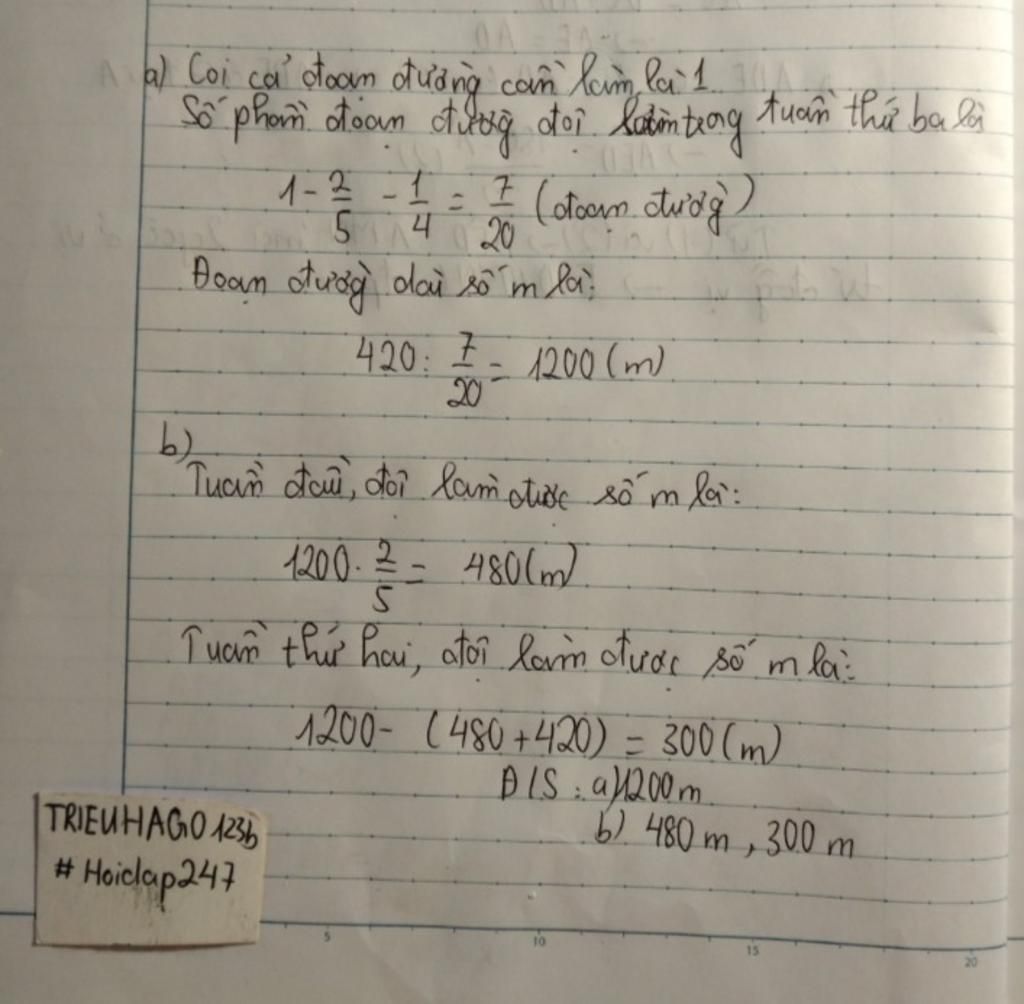 a) Coi cả đoạn đường cần làm là 1
Số phần đoạn đường đội làm trong tuần thứ ba là
1 - 2/5 - 1/4 = 7/20 (đoạn đường)
Đoạn đường dài số m là:
420 : 7/20 = 1200 (m)
b)
Tuần đầu, đội làm được số m là:
1200 . 2/5 = 480 (m)
Tuần thứ hai, đội làm được số m là:
1200 - (480 + 420) = 300 (m)
Đ/S : a) 1200 m
b) 480 m , 300 m
TRIEUHAGO123b
# Hoidap247
5 10 15 20